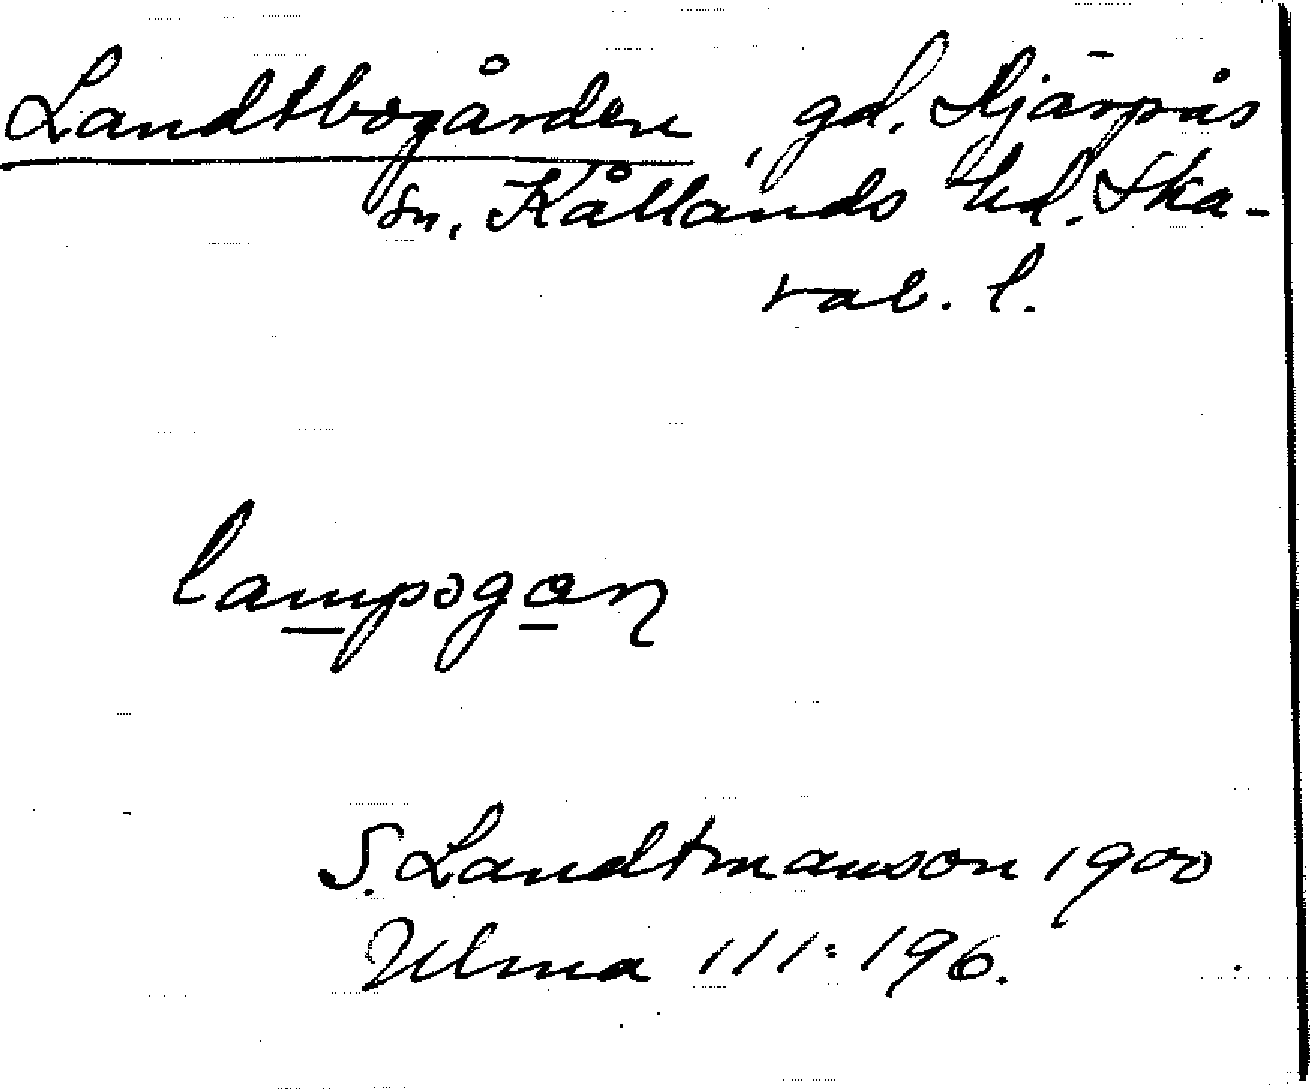 Landtbogården, gd. Skjärpås
sn, Kållands hd. Ska-
rab. l.
lampogan
S. Landtmanson 1900
Ulma 111:196.